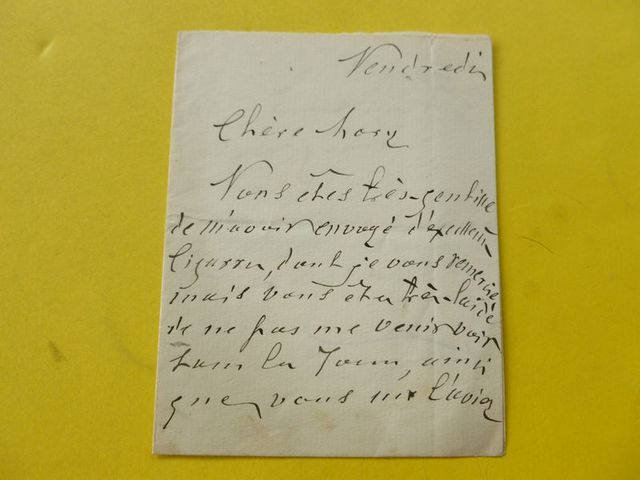 Vendredi
Chère Mary
Vous êtes très-gentille
de m'avoir envoyé d'excellents
Cigares, dont je vous remercie
mais vous êtes très-laide
de ne pas me venir voir
tous les Jours, ainsi
que vous me l'aviez